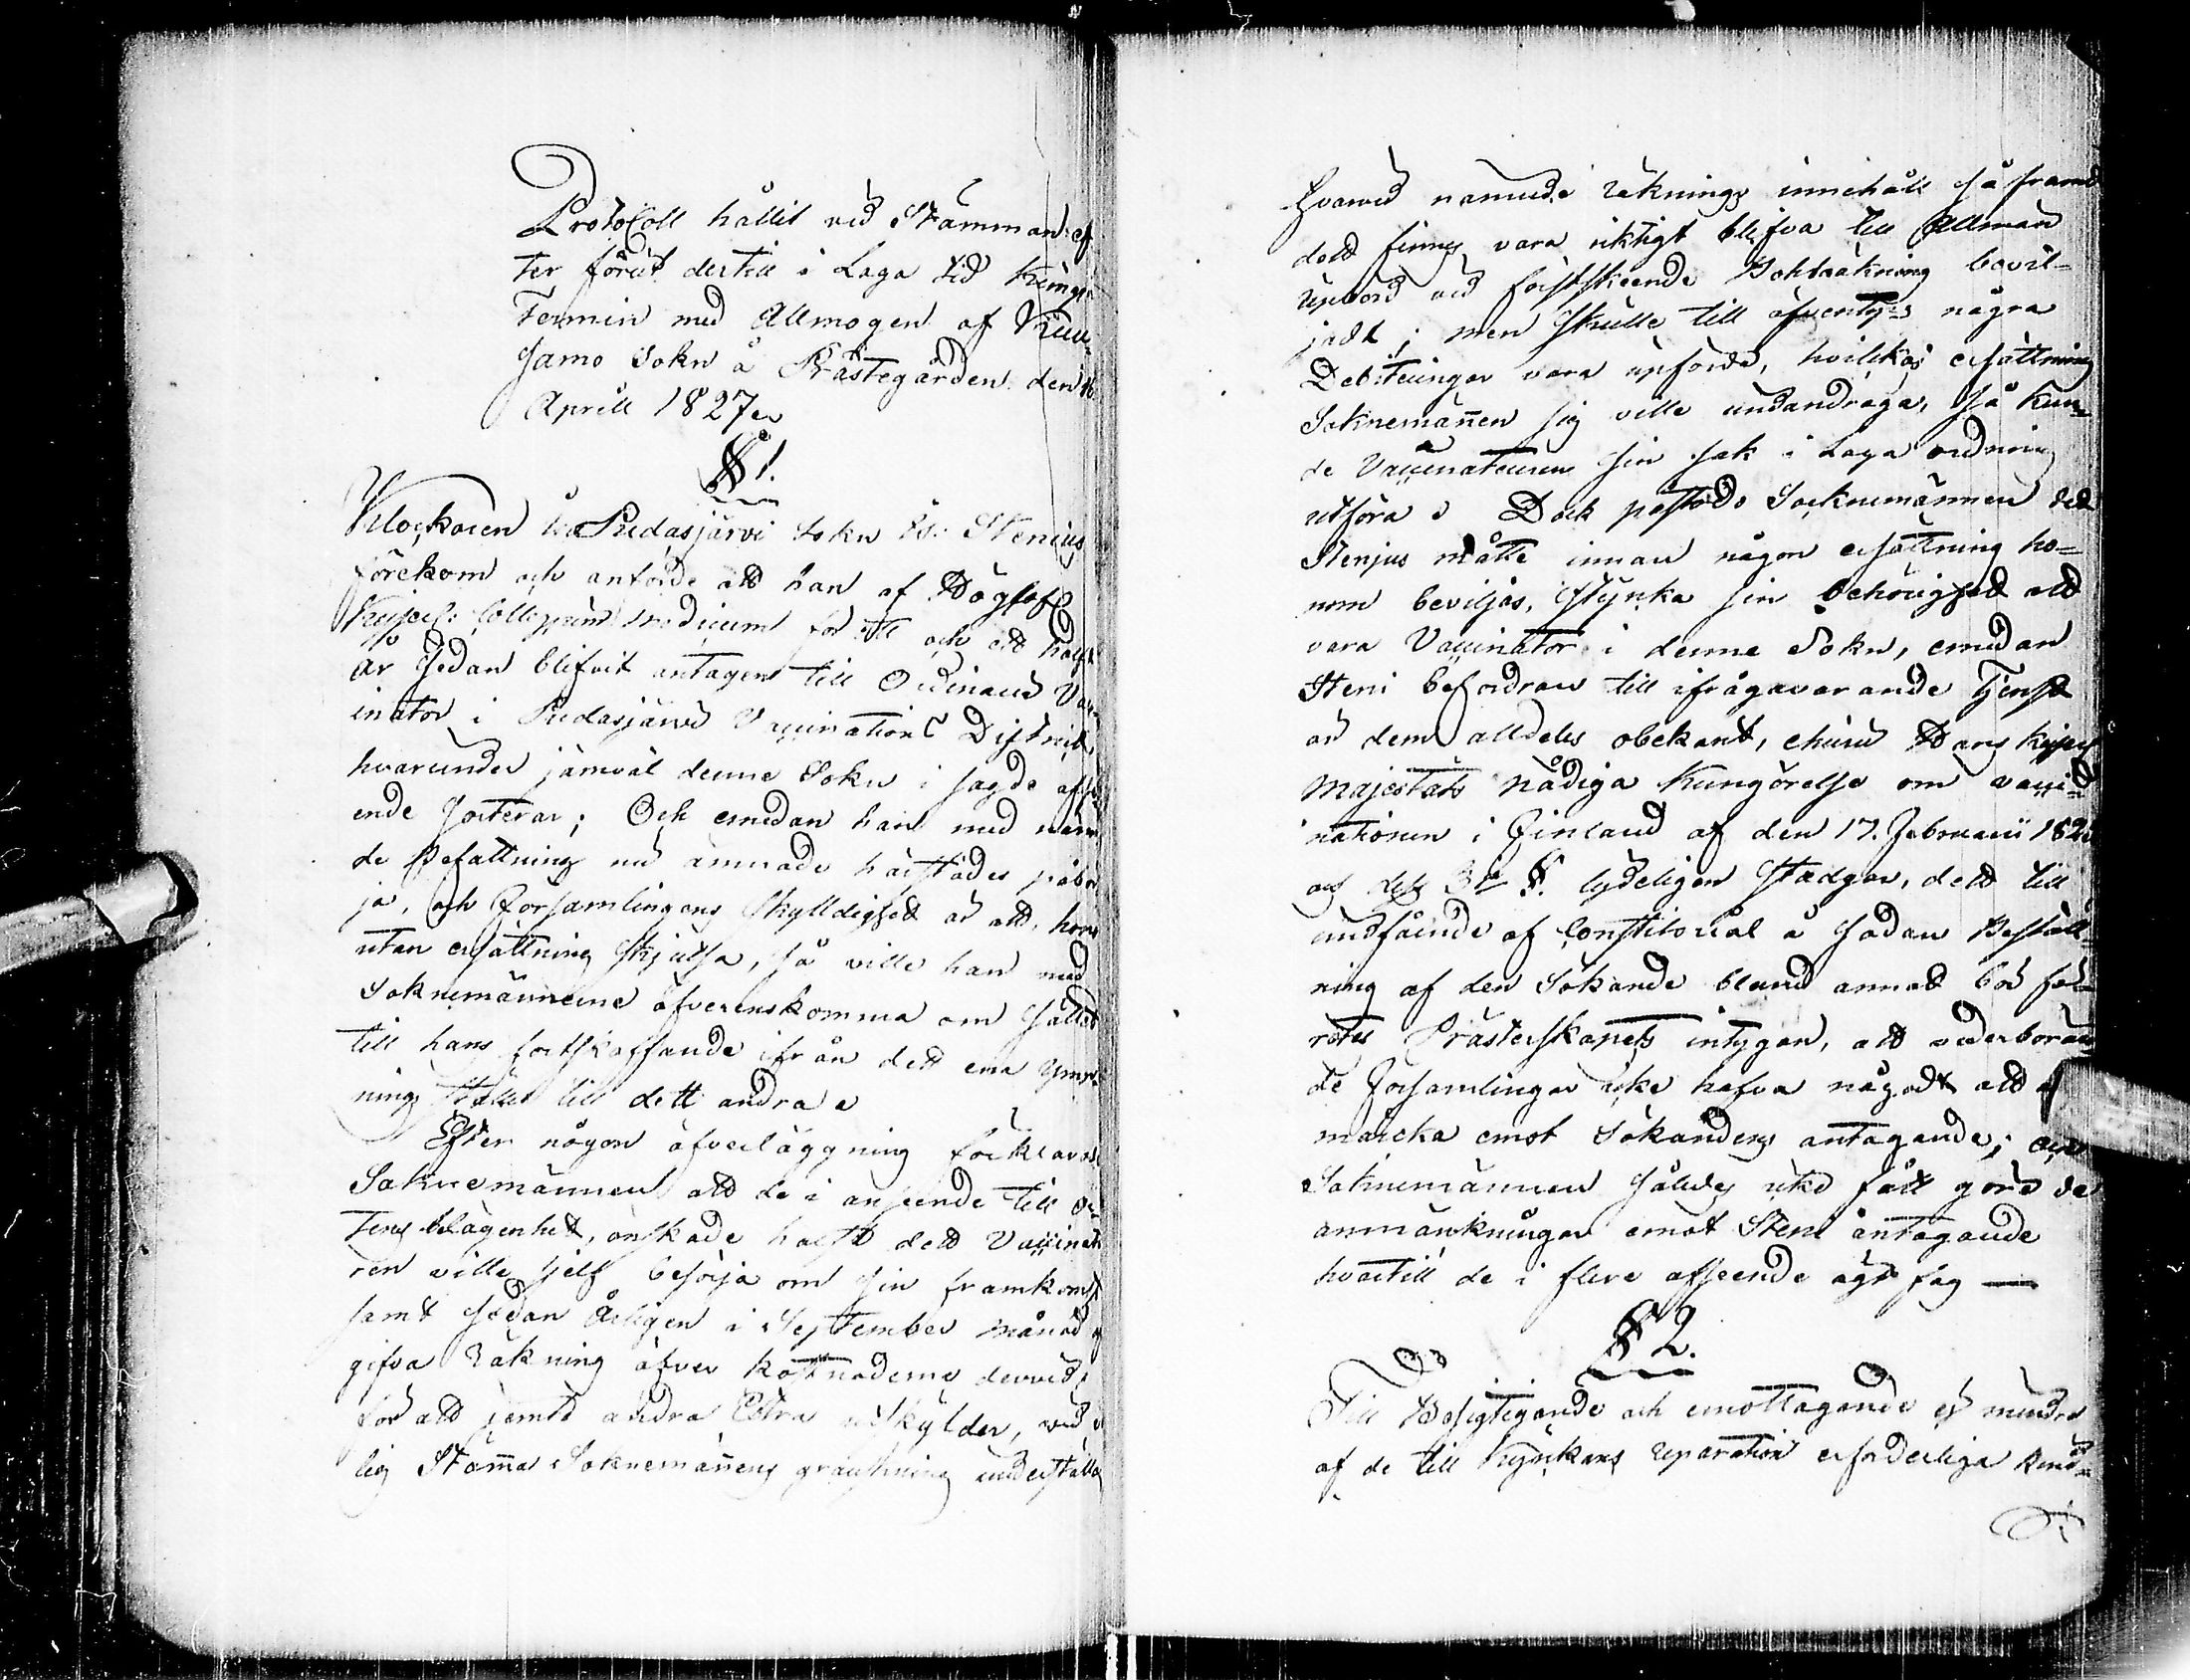 Protocoll hållit vid Stämman ef
ter förut dertill i Laga tid kungj:
Termin med Allmogen af Kuu-
samo Sokn å Prästegården den
Aprill 1827
§ 1.
Klockaren i Pudasjärvi Sokn Stenius
förekom och anförde att han af Höglofl
Kejserl: Collegium medicum för ett och ett halft
år sedan blifvit antagen till Ordinarie Vac-
inator i Pudasjärvi Vaccinations District,
hvarunder jämväl denne Sokn i sagde afse-
ende sorterar; Och emedan han med näm
de Befattning nu ämnade härstädes påbör
ja, och Församlingens Skylldighet är att, honom
utan ersättning skjutsa, så ville han med
Soknemännerne öfverenskomma om sättet
till hans fortskaffande ifrån dett ena ymp-
nings stället till dett andra
Efter någon öfverläggning förklarade
Soknemännen att de i anseende till or-
tens belägenhet, önskade hälst dett Vaccinato
ren ville sjelf besörja om sin framkomst
samt sedan Årligen i September månad
gifva Räkning öfver kostnaderne dervid,
för att jemte andra Extra utskylder, vid
lig Stämma Soknemännens granskning underställas
hvarvid nämnde räknings innehåll så framt
dett finnes vara riktigt blifva till Allmän
upbörd vid förstskeende Bokhräkning bevil-
jadt; men skulle till äfventyrs några
Debiteringar vara upförde, hvilkas ersättning
Soknemännen sig ville undandraga, så kun-
de Vaccinateuren sin sak i Laga ordning
utföra. Dock påstodo Socknemännen det
Stenjus måtte innan någon ersättning ho-
nom beviljas, styrka sin behörighet att
vara Vaccinator i denne Sokn, emedan
Steni befordran till ifrågavarande Tjenst
är dem alldeles obekant, ehuru Hans Kejserl
Majestäts Nådiga Kungörelse om vacci-
nationen i Finland af den 17. Februarii 182
uti dess 3de §. tydeligen Stadgar, dett till
undfående af Constitorial å sådan Beställ-
ning af den Sökande bland annat bör för-
rötes Prästerskapets intygan, att vederböran-
de Församlingar icke hafva någodt att an
märcka emot Sökandens antagande; och
Soknemännen således icke fått göra de
anmärkningar emot Steni antagande
hvartill de i flere afseende ägt fog —
§ 2.
Till Besigtigande och emottagande ej mindre
af de till Kyrkans reparation erforderliga